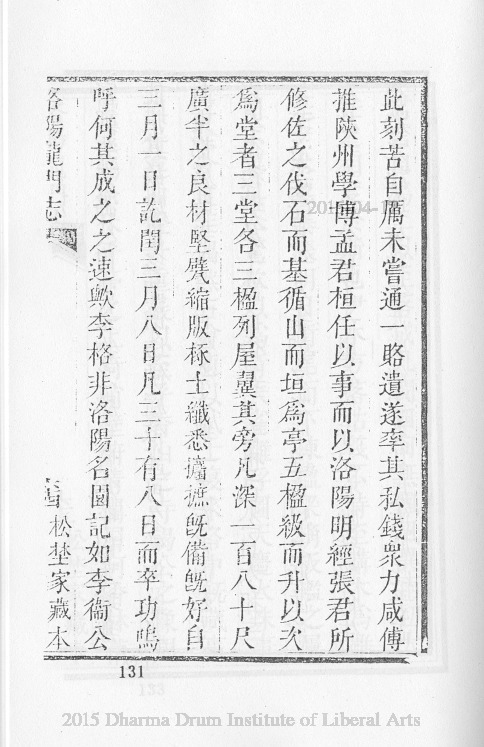 此刻苦自厲未嘗通一賂遺遂率其私錢衆力咸傅
推陜州學博孟君桓任以事而以洛陽明經張君所
修佐之伐石而基循山而垣爲亭五楹級而升以次
爲堂者三堂各三楹列屋翼其旁凡深一百八十尺
廣半之良材堅甓縮版椓土纖悉攟摭旣備旣好自
三月一日訖閏三月八日凡三十有八日而卒功嗚
呼何其成之之速歟李格非洛陽名園記如李衞公
洛陽龍門志
松埜家藏本
131
2015 Dharma Drum Institute of Liberal Arts